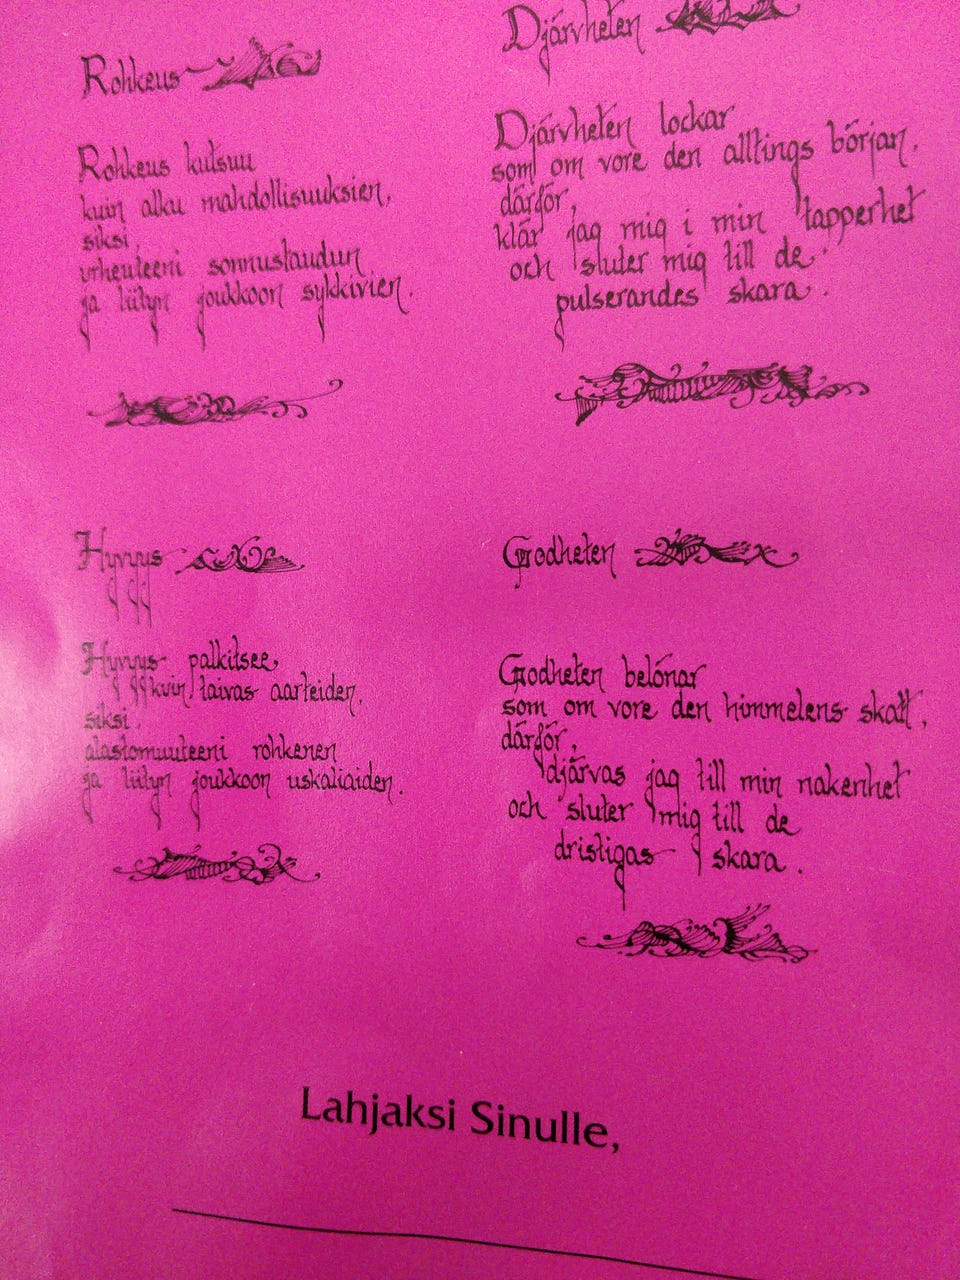 Rohkeus
Rohkeus kutsuu
kuin alku mahdollisuuksien,
siksi,
urheuteeni sonnustaudun
ja liityn joukkoon sykkivien.
Djärvheten
Djärvheten lockar
som om vore den alltings början,
därför,
klär jag mig i min tapperhet
och sluter mig till de
pulserandes skara.
Hyvyys
Hyvyys palkitsee,
kuin taivas aarteiden,
siksi,
alastomuuteeni rohkenen
ja liityn joukkoon uskaliaiden.
Godheten
Godheten belönar
som om vore den himmelens skatt,
därför,
djärvas jag till min nakenhet
och sluter mig till de
dristigas skara.
Lahjaksi Sinulle,